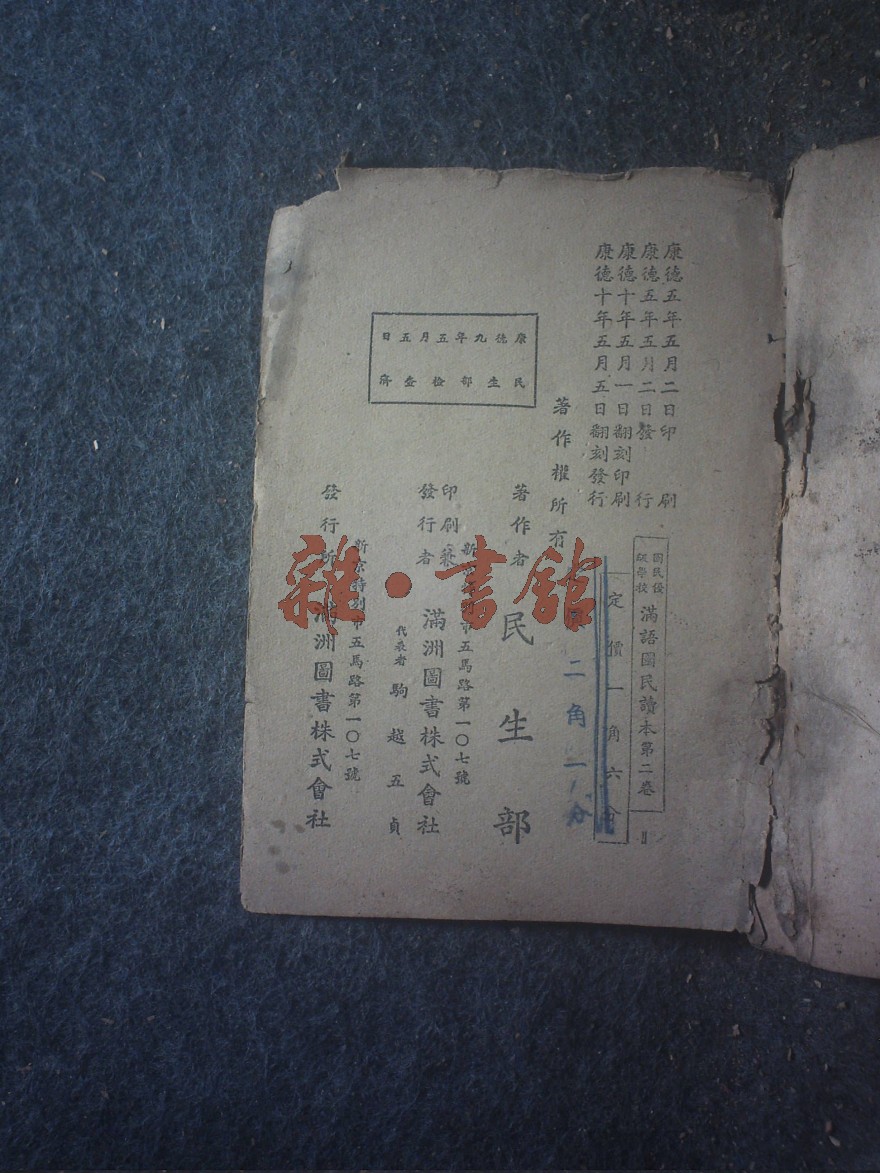 康德五年五月二日印刷
康德五年五月二日發行
康德十年五月一日翻刻印刷
康德十年五月五日翻刻發行
國民優級學校
滿語國民讀本第二卷
定價一角六分
二角二分
著作權所有
著作者 民生部
新京特別市五馬路第一〇七號
印刷兼發行者 滿洲圖書株式會社
代表者 駒越五貞
新京特別市五馬路第一〇七號
發行所 滿洲圖書株式會社
康德九年五月五日
民生部檢查濟
雜·書館